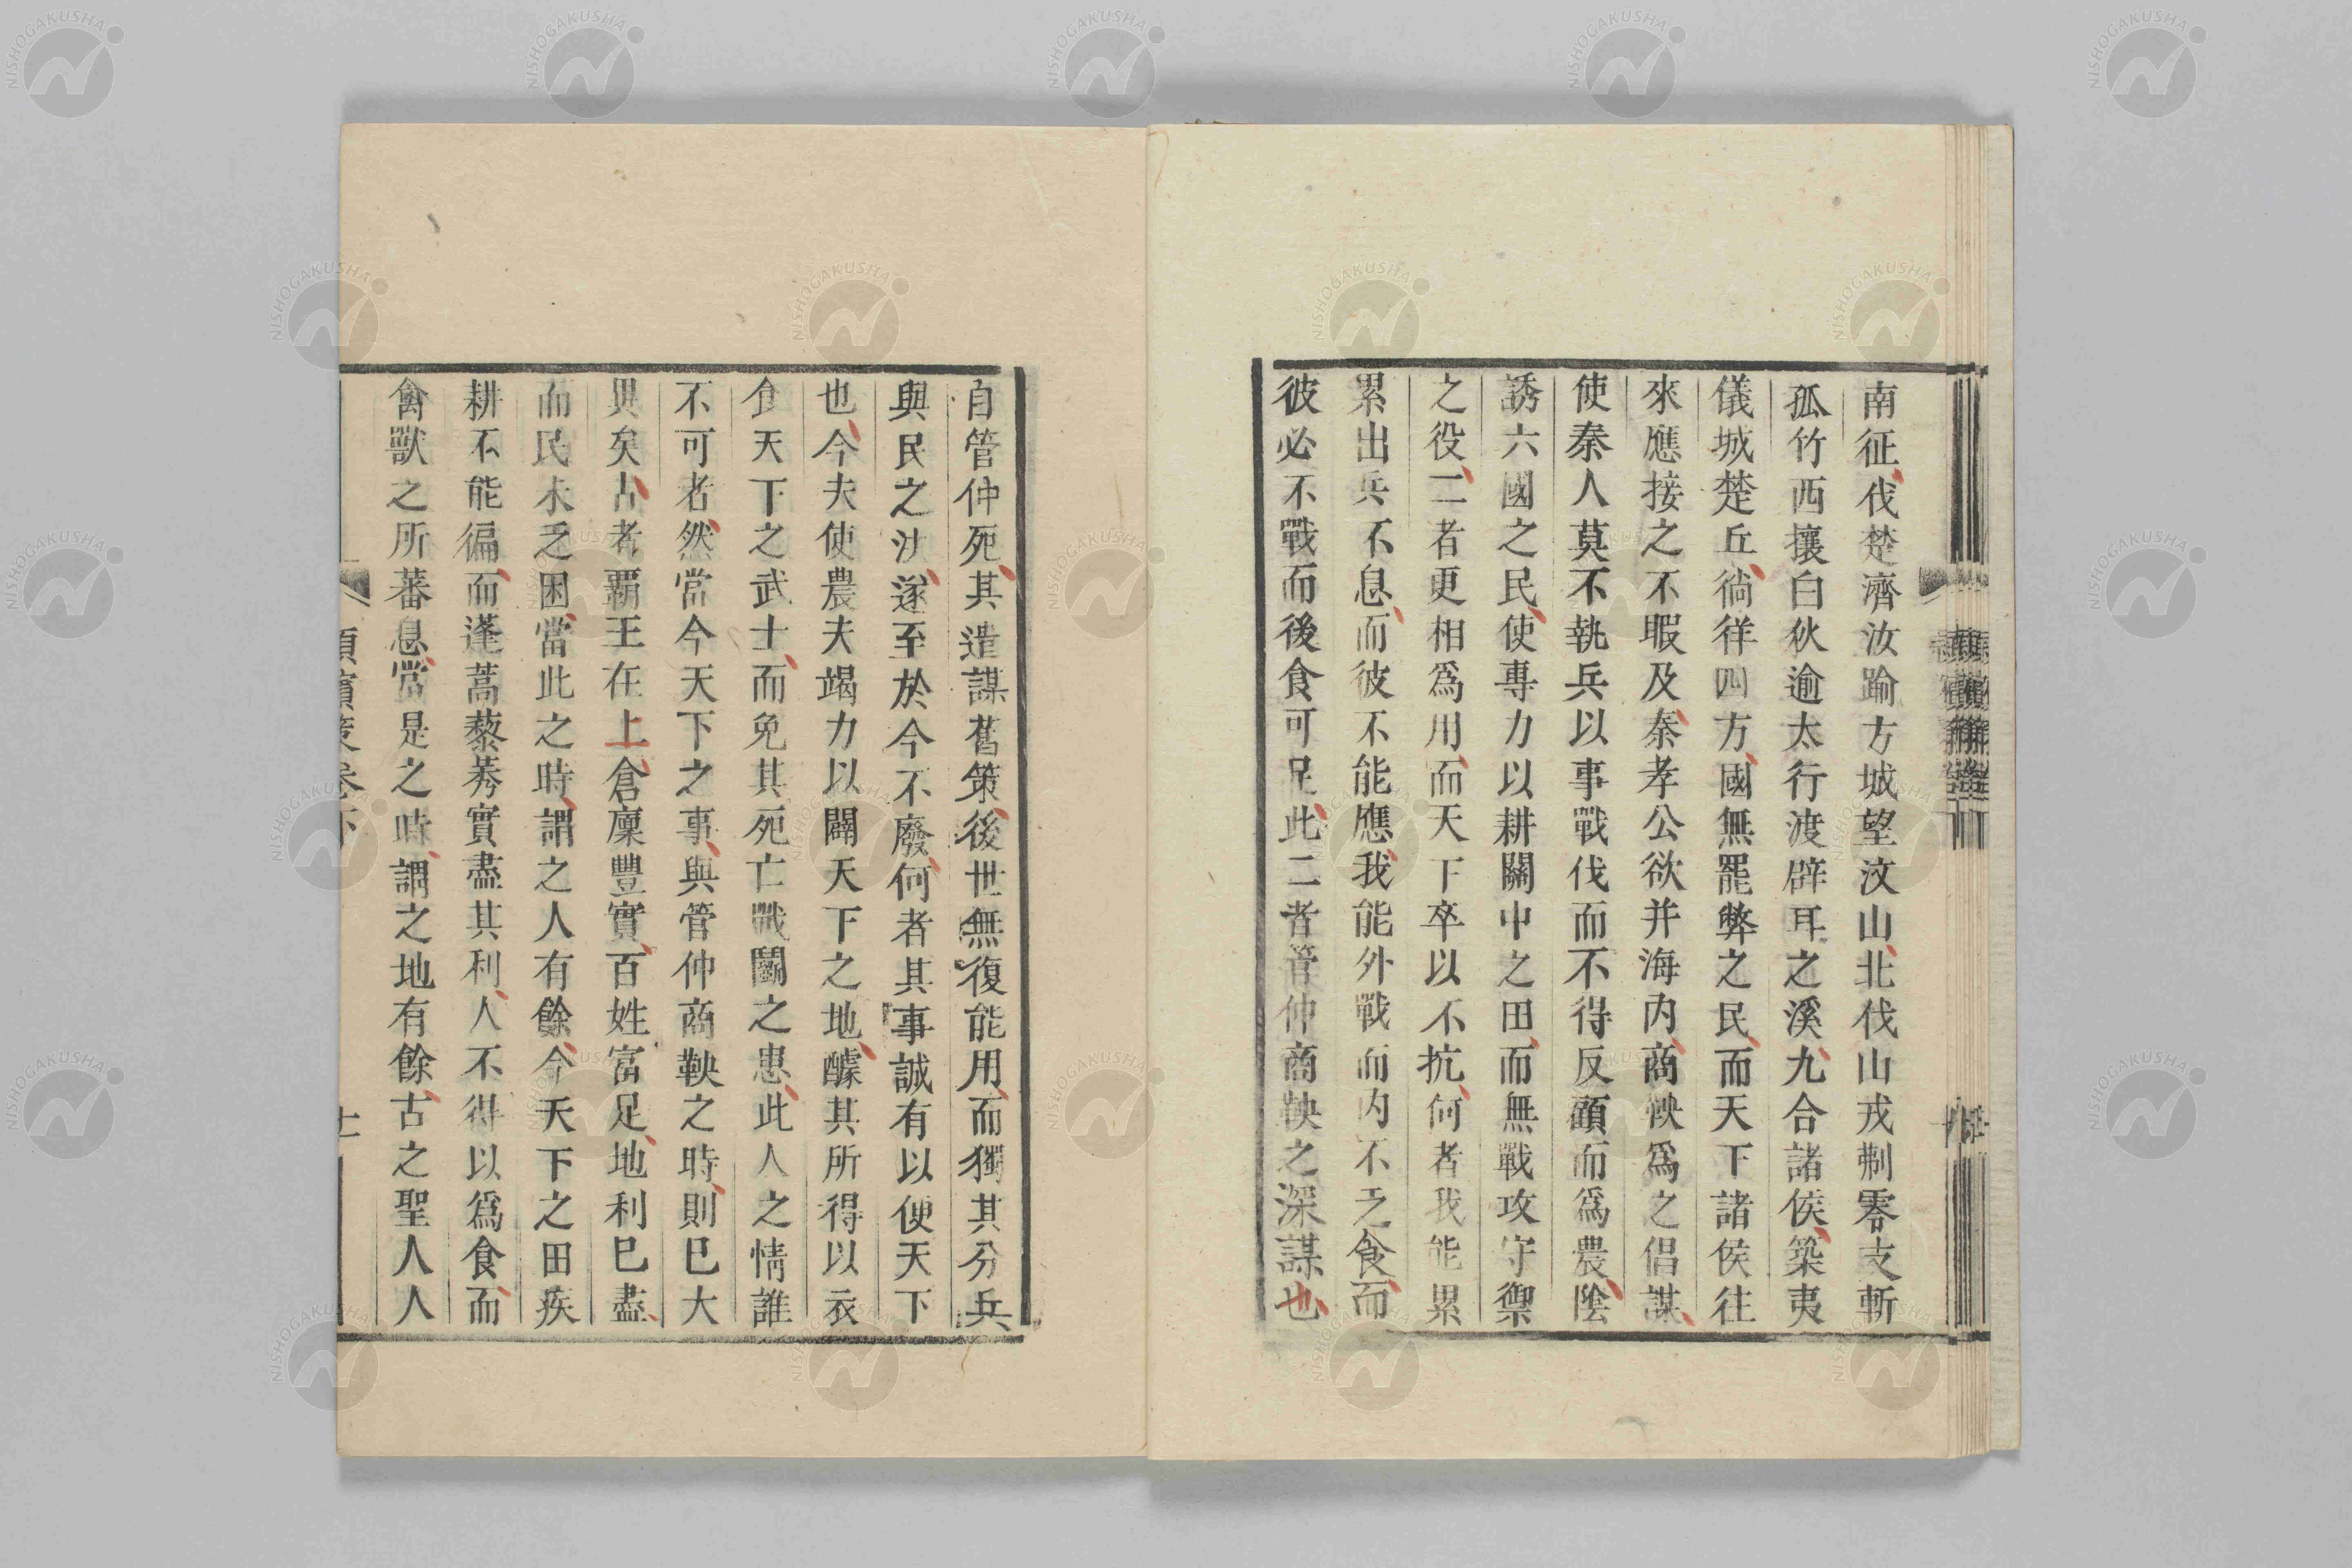 南征伐楚濟汝踰方城望汶山北伐山戎制零支斬
孤竹西攘白狄逾太行渡辟耳之溪九合諸侯築夷
儀城楚丘徜徉四方國無罷弊之民而天下諸侯往
來應接之不暇及秦孝公欲并海内商鞅爲之倡謀
使秦人莫不執兵以事戰伐而不得反顧而爲農陰
誘六國之民使專力以耕關中之田而無戰攻守禦
之役二者更相爲用而天下卒以不抗何者我能累
累出兵不息而彼不能應我能外戰而内不乏食而
彼必不戰而後食可足此二者管仲商鞅之深謀也
自管仲死其遺謀舊策後世無復能用而獨其分兵
與民之法遂至於今不廢何者其事誠有以便天下
也今夫使農夫竭力以闢天下之地醵其所得以衣
食天下之武士而免其死亡戰鬭之患此人之情誰
不可者然當今天下之事與管仲商鞅之時則已大
異矣古者霸王在上倉廩豐實百姓富足地利已盡
而民未乏困當此之時謂之人有餘今天下之田疾
耕不能徧而蓬蒿藜莠實盡其利人不得以爲食而
禽獸之所蕃息當是之時謂之地有餘古之聖人人
頴濱策卷下
十一
NISHOGAKUSHA